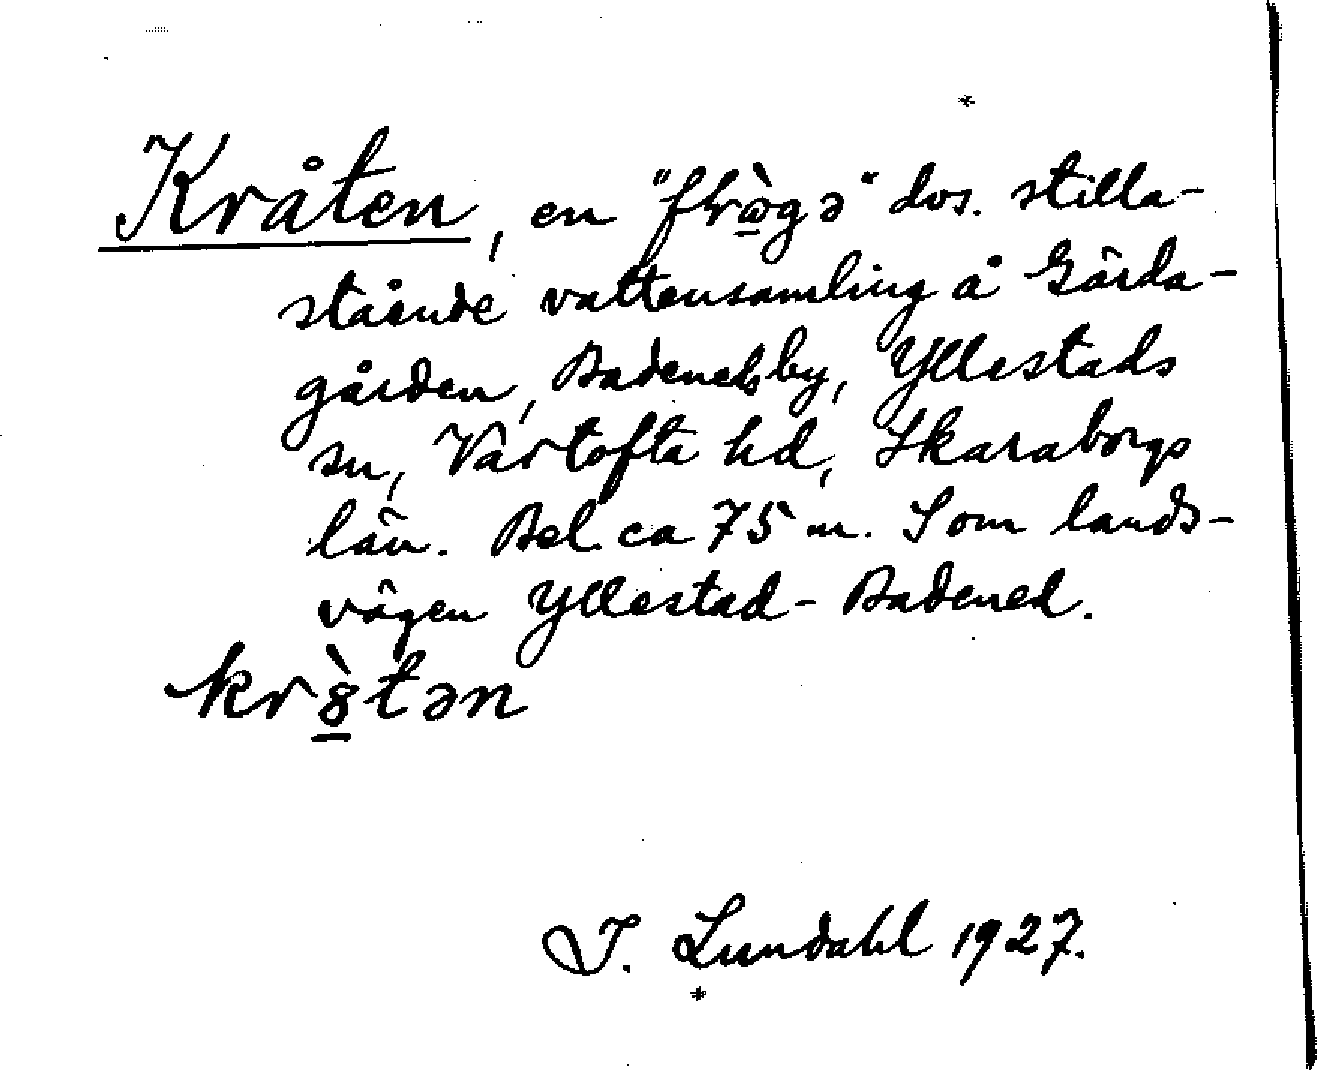 Kråten, en "frògə" dvs. stilla-
stående vattensamling å Gärda-
gården, Badeneds by, Yllestads
sn, Vartofta hd, Skaraborgs
län. Bel. ca 75 m. S om lands-
vägen Yllestad - Badened.
kr8̀tən
I. Lundahl 1927.